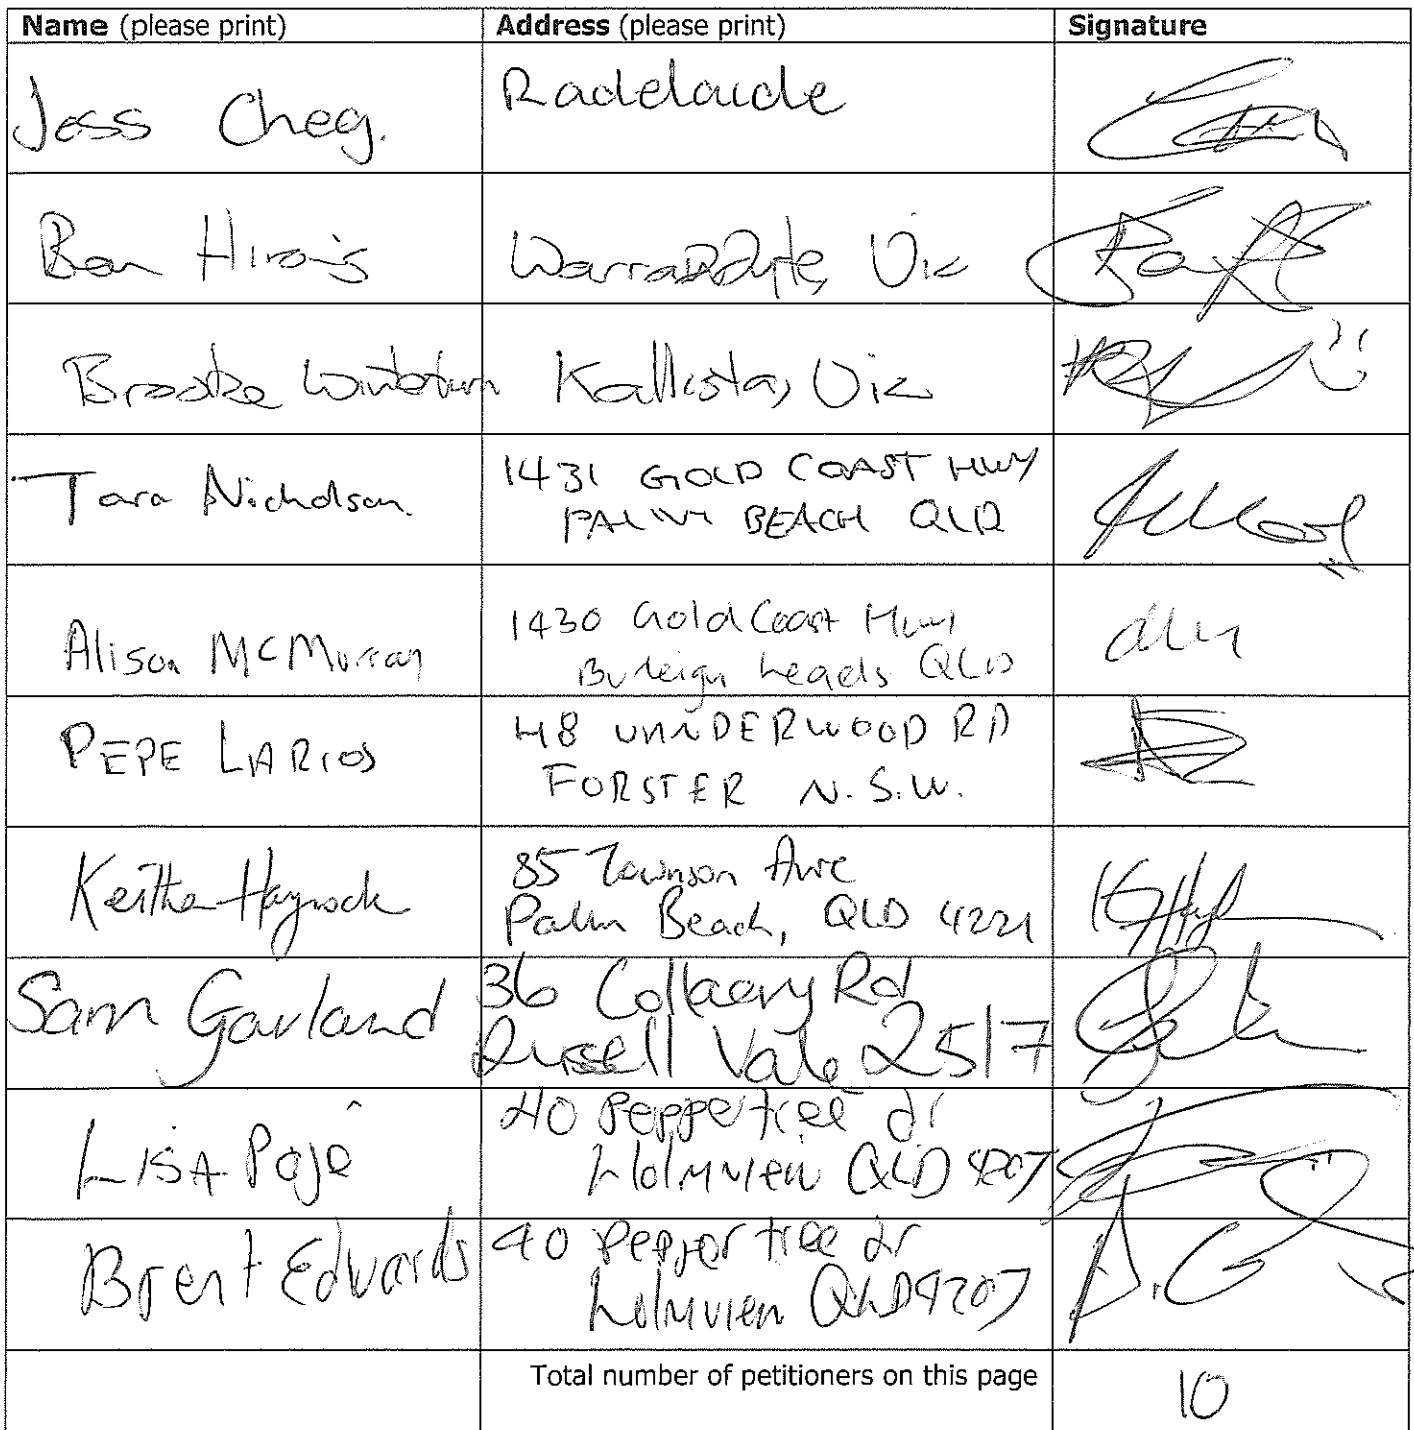 Name (please print) Address (please print) Signature
Jess Cheg. Radelaide
Ben Warrandyte, Vic
Brooke Kallista, Vic
Tara Nicholson. 1431 GOLD COAST HWY
PALM BEACH QLD
Alison McMurray 1430 Gold Coast Hwy
Burleigh heads QLD
PEPE LARIOS 48 UNNDERWOOD RD
FORSTER N.S.W.
Keitha Haycock 85 Townson Ave
Palm Beach, QLD 4221
Sam Garland 36 Collaery Rd
Russell Vale 2517
LISA Pajê 40 peppertree dr
Holmview QLD 4207
Brent Edwards 40 pepper tree dr
holmview QLD 4207
Total number of petitioners on this page 10